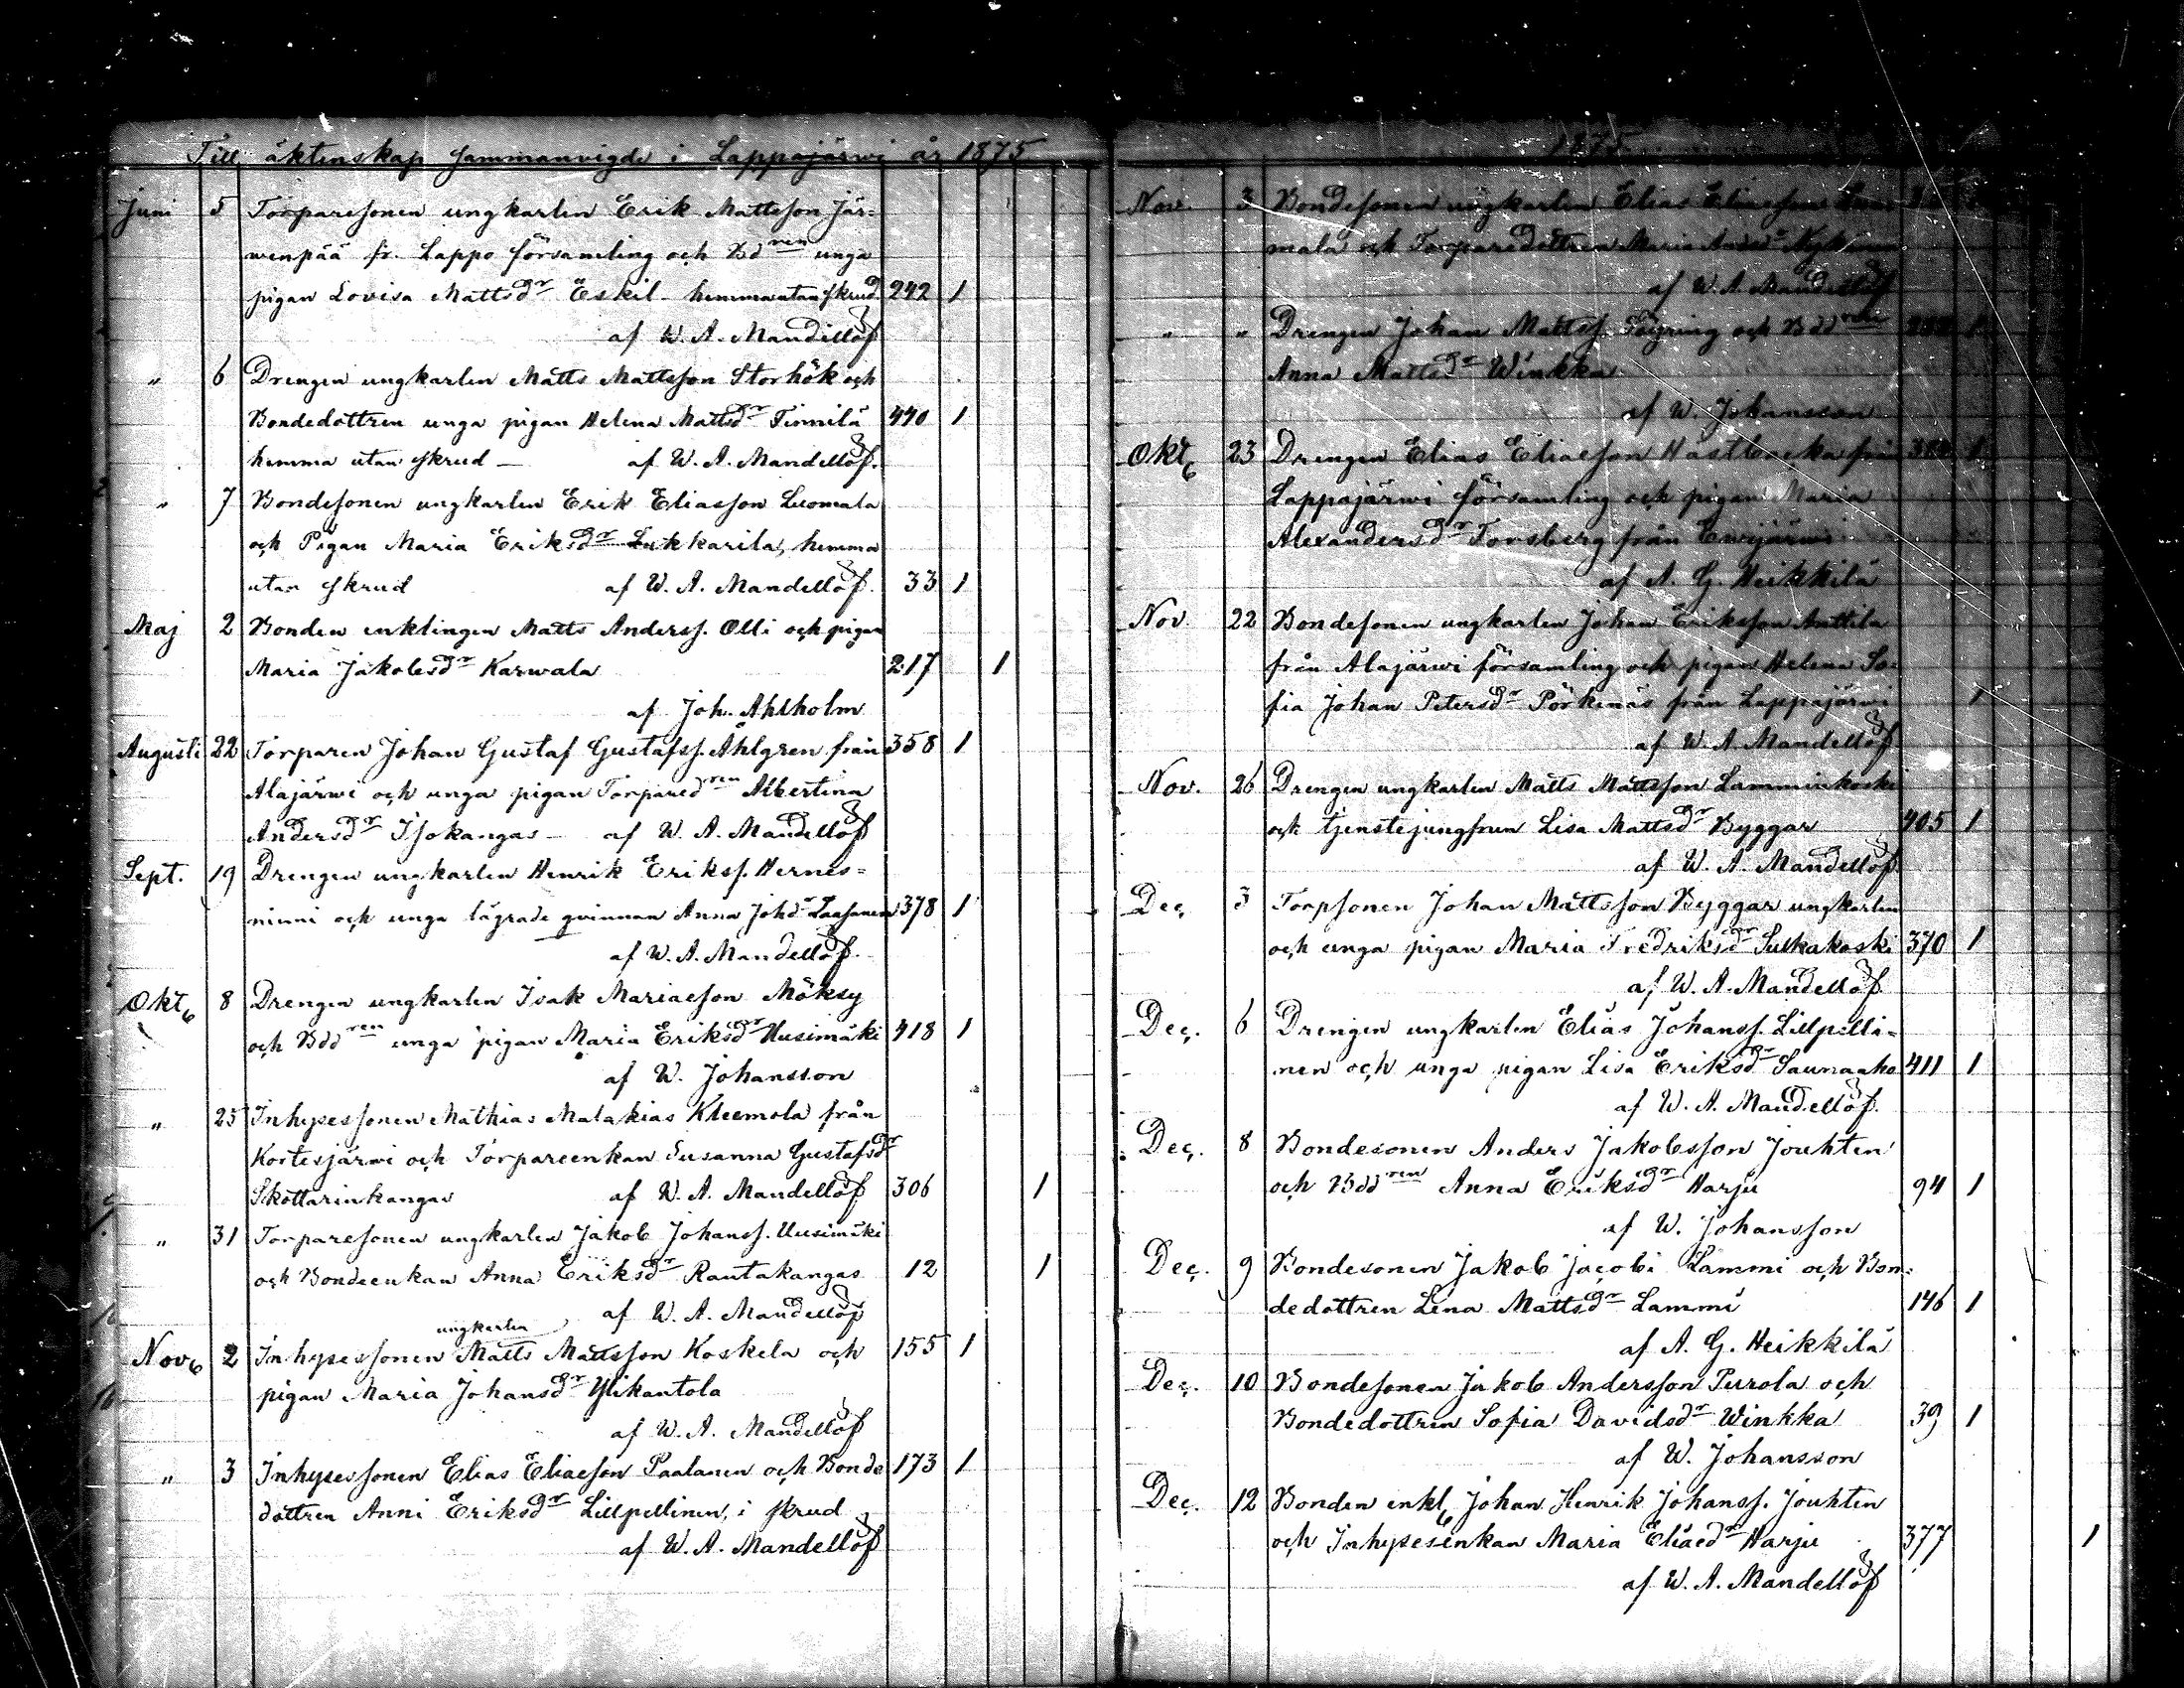 Till äktenskap sammanvigde i Lappajärwi år 1875
Juni 5 Torparesonen ungkarlen Erik Mattsson Jär=
wenpää fr. Lappo församling och Bdren unga
pigan Lovisa Mattsdr Eskil hemma utan skrud 242 1
af W. A. Mandellöf
" 6 Drengen ungkarlen Matts Mattsson Storhök och
Bondedottren unga pigan Helena Mattsdr Finnilä 440 1
hemma utan skrud — af W. A. Mandellöf.
" 7 Bondesonen ungkarlen Erik Eliasson Luomala
och Pigan Maria Eriksdr Lukkarila, hemma
utan skrud af W. A. Mandellöf. 33 1
Maj 2 Bonden enklingen Matts Anderss. Olli och pigan
Maria Jakobsdr Karwala 217 1
af Joh. Ahlholm
Augusti 22 Torparen Johan Gustaf Gustafss. Åhlgren från 358 1
Alajärwi och unga pigan Torparedren Albertina
Andersdr Isokangas — af W. A. Mandellöf
Sept. 19 Drengen ungkarlen Henrik Erikss. Hernes=
niemi och unga lägrade qvinnan Anna Johdr 378 1
af W. A. Mandellöf.
Okt. 8 Drengen ungkarlen Isak Mariasson Möksy
och Bddren unga pigan Maria Eriksdr Uusimäki 418 1
af W. Johansson
" 25 Inhysessonen Mathias Malakias Kleemola från
Kortesjärwi och Torpareenkan Susanna Gustafsdr
Skottarinkangas af W. A. Mandellöf 306 1
" 31 Torparesonen ungkarlen Jakob Johanss. Uusimäki
och Bondeenkan Anna Eriksdr Rautakangas 12 1
af W. A. Mandellöf
ungkarlen
Nov. 2 Inhysessonen Matts Mattsson Koskela och 155 1
pigan Maria Johansdr Ylikantola
af W. A. Mandellöf
" 3 Inhysessonen Elias Eliasson Paalanen och Bonde 173 1
dottren Anni Eriksdr Lillpellinen, i skrud
af W. A. Mandellöf
1875
Nov. 3 Bondesonen ungkarlen Elias Eliasson
mala och Torparedottren Maria Andsdr
af W. A. Mandellöf
" " Drengen Johan Mattss. och Bddren 1
Anna Mattsdr Winkka
af W. Johansson
Okt. 23 Drengen Elias Eliasson Hästbacka från 1
Lappajärwi församling och pigan Maria
Alexandersdr Forsberg från Ewijärwi
af A. G. Heikkilä
Nov. 22 Bondesonen ungkarlen Johan Eriksson Anttila
från Alajärwi församling och pigan Helena So=
fia Johan Petersdr Pörkenäs från Lappajärwi 1
af W. A. Mandellöf
Nov. 26 Drengen ungkarlen Matts Mattsson Lamminkoski
och tjenstejungfrun Lisa Mattsdr Byggar 405 1
af W. A. Mandellöf.
Dec. 3 Torpsonen Johan Mattsson Byggar ungkarlen
och unga pigan Maria Fredriksdr Sulkakoski 370 1
af W. A. Mandellöf
Dec. 6 Drengen ungkarlen Elias Johanss. Lillpelli=
nen och unga pigan Lisa Eriksdr Saunaaho 411 1
af W. A. Mandellöf.
Dec. 8 Bondesonen Anders Jakobsson Jouhten
och Bddren Anna Eriksdr Harju 94 1
af W. Johansson
Dec. 9 Bondesonen Jakob Jacobi Lammi och Bon=
dedottren Lena Mattsdr Lammi 146 1
af A. G. Heikkilä
Dec. 10 Bondesonen Jakob Andersson Purola och
Bondedottren Sofia Davidsdr Winkka 39 1
af W. Johansson
Dec. 12 Bonden enkl. Johan Henrik Johanss. Jouhten
och Inhysesenkan Maria Eliaedr Harju 377 1
af W. A. Mandellöf